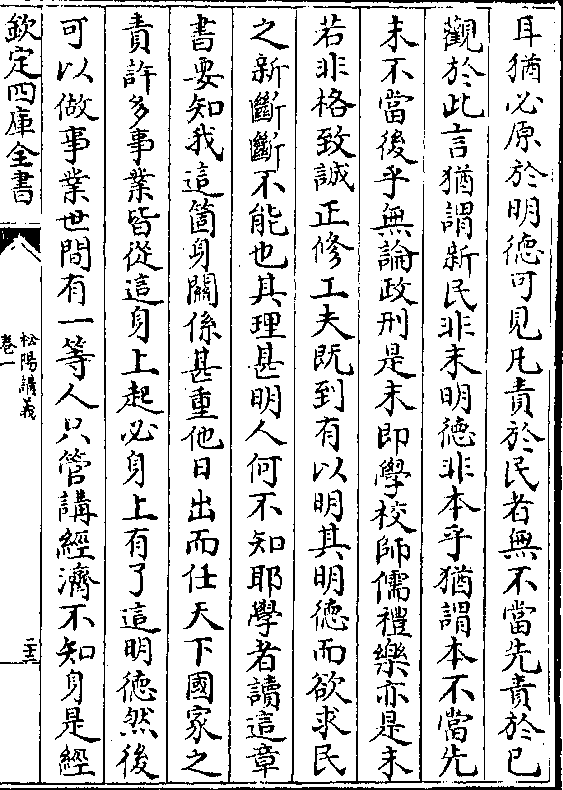 耳猶必原於明德可見凡責於民者無不當先責於己
觀於此言猶謂新民非末明德非本乎猶謂本不當先
末不當後乎無論政刑是末即學校師儒禮樂亦是末
若非格致誠正修工夫既到有以明其明德而欲求民
之新斷斷不能也其理甚明人何不知耶學者讀這章
書要知我這箇身關係甚重他日出而仕天下國家之
責許多事業皆從這身上起必身上有了這明德然後
可以做事業世間有一等人只管講經濟不知身是經
欽定四庫全書
松陽講義
卷一
二十三